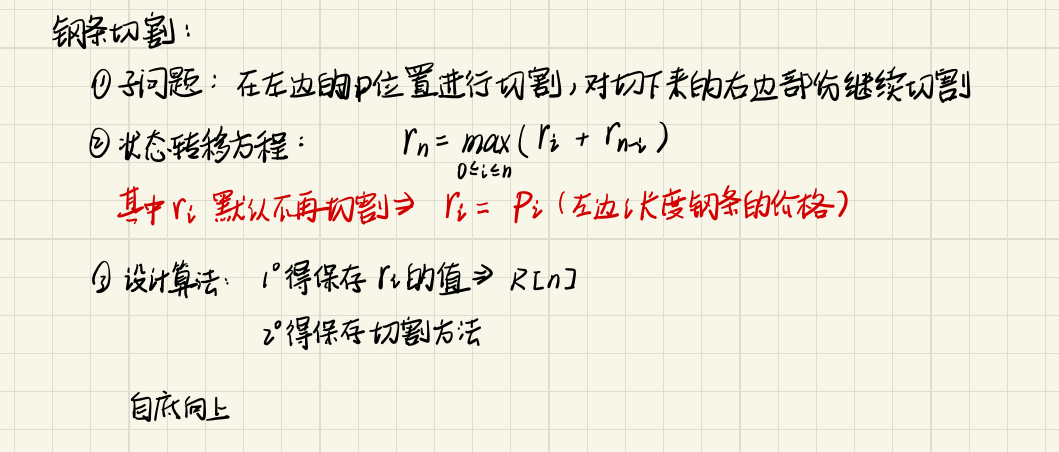 钢条切割：
① 子问题：在左边的p位置进行切割，对切下来的右边部份继续切割
② 状态转移方程： rₙ = max(rᵢ + rₙ₋ᵢ)
0≤i≤n
其中 rᵢ 默认不再切割⇒ rᵢ = Pᵢ (左边i长度钢条的价格)
③ 设计算法： 1° 得保存 rᵢ的值⇒ R[n]
2° 得保存切割方法
自底向上